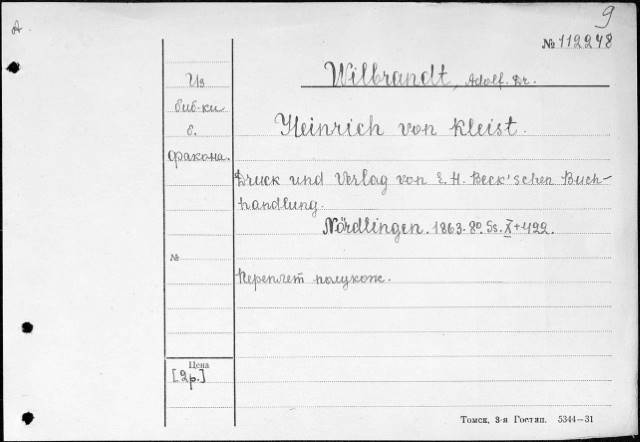 A
9
№ 112248
Wilbrandt, Adolf. Dr.
Из
биб-ки
б.
Фракона.
Heinrich von Kleist.
Druck und Verlag von C. H. Beck'schen Buch-
handlung.
Nördlingen. 1863. 8º. Ss. X+422.
№
Переплет полукож.
Цена
[2р.]
Томск, 3-я Гостип. 5344—31